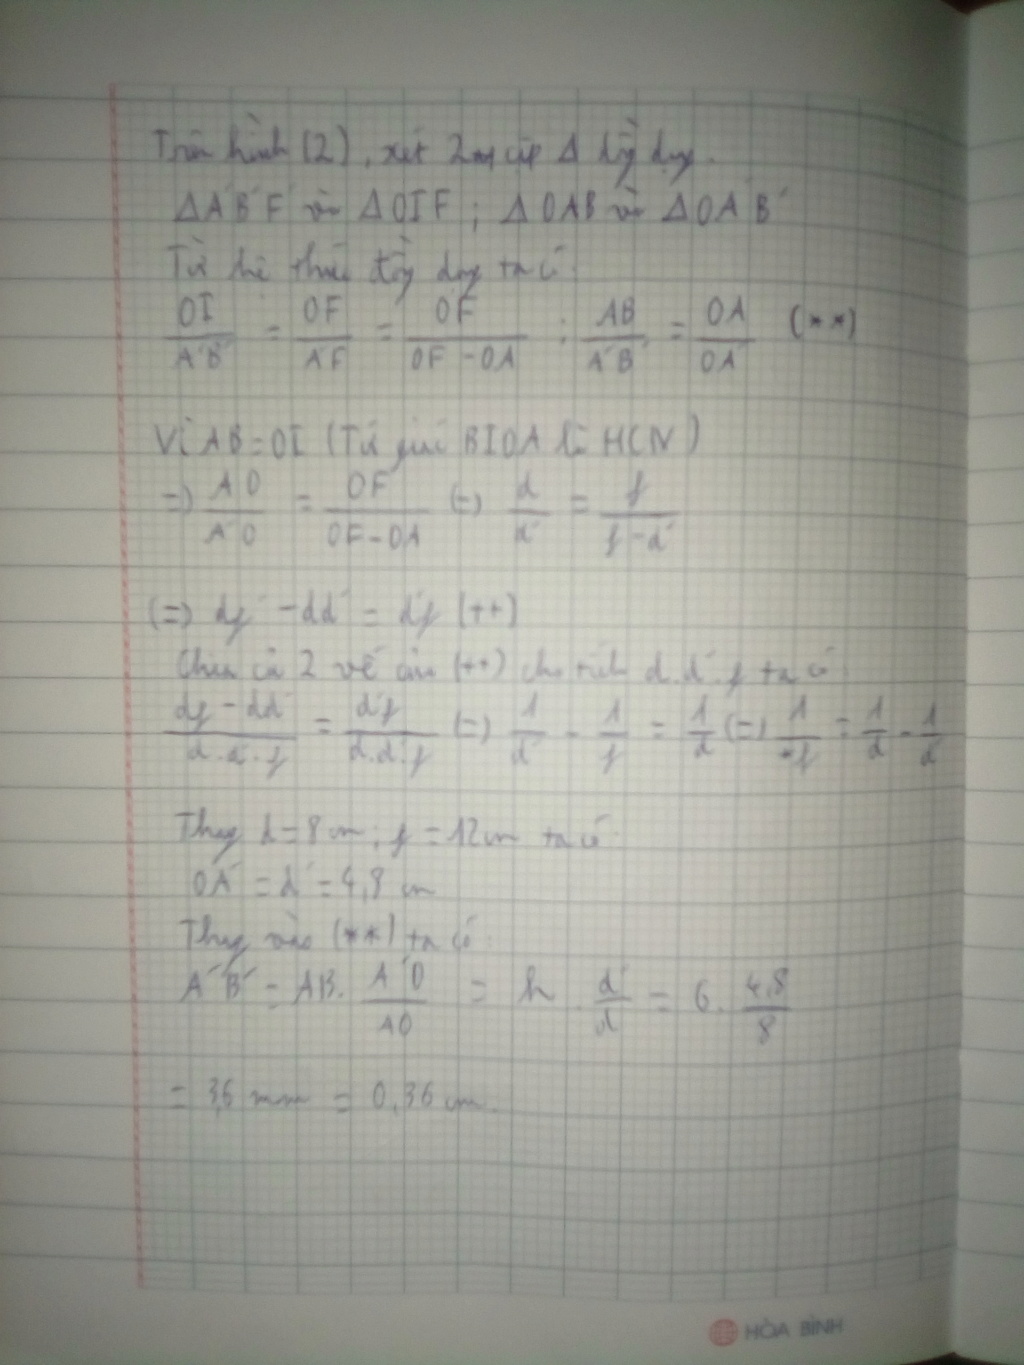 Trên hình (2), xét 2 cặp Δ đồng dạng.
ΔA'B'F' và ΔOIF' ; ΔOAB và ΔOA'B'
Từ hệ thức đồng dạng ta có:
OI/A'B' = OF/A'F = OF/OF - OA' ; AB/A'B' = OA/OA' (**)
Vì AB = OI (Tứ giác BIOA là HCN)
=> AO/A'O = OF/OF - OA' (=) d/d' = f/f - d'
(=) df - dd' = d'f (++)
Chia cả 2 vế của (++) cho tích d.d'.f ta có
df - dd'/d.d'.f = d'f/d.d'.f (=) 1/d' - 1/f = 1/d (=) 1/-f = 1/d - 1/d'
Thay d = 8cm ; f = 12cm ta có:
OA' = d' = 4,8 cm
Thay vào (**) ta có:
A'B' = AB. A'O/AO = h . d'/d = 6. 4,8/8
= 3,6 mm = 0,36 cm.
HÒA BÌNH